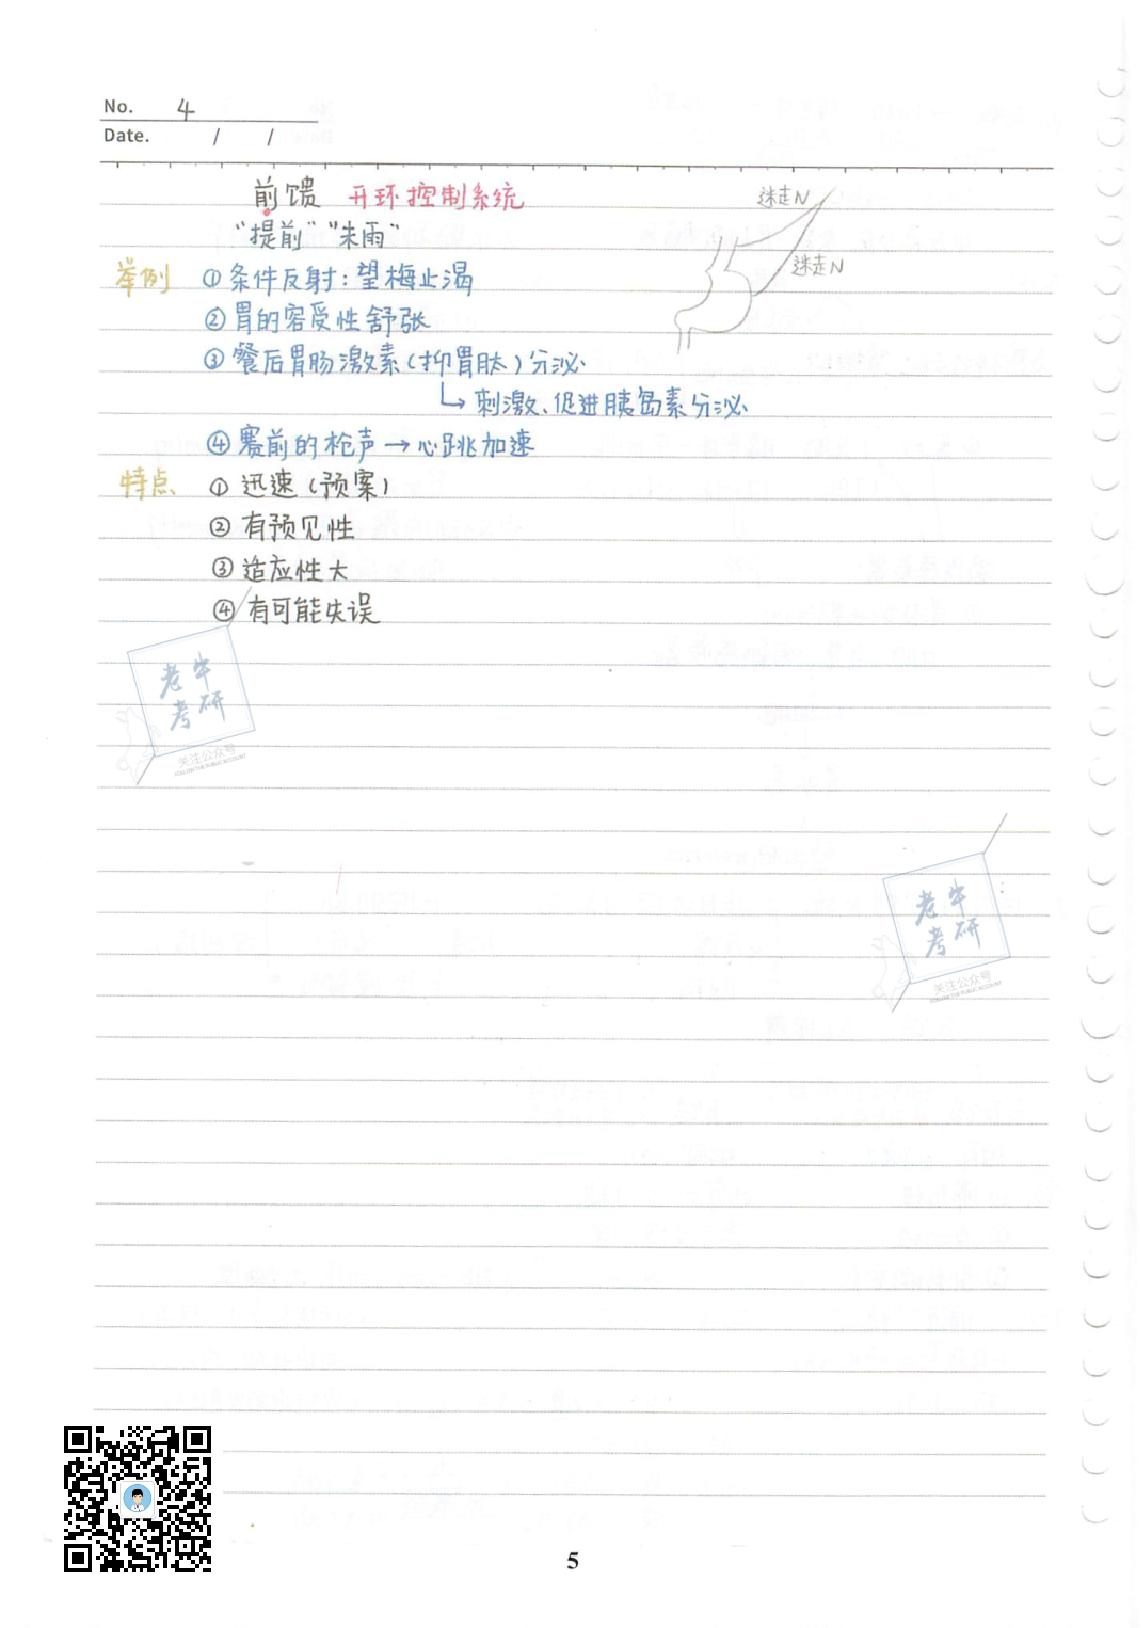 No. 4
Date. / /
前馈 开环控制系统
"提前" "未雨"
迷走N
迷走N
举例 ①条件反射:望梅止渴
②胃的容受性舒张
③餐后胃肠激素(抑胃肽)分泌
↳刺激、促进胰岛素分泌
④赛前的枪声→心跳加速
特点 ①迅速(预案)
②有预见性
③适应性大
④有可能失误
老牛
考研
关注公众号
老牛
考研
关注公众号
5